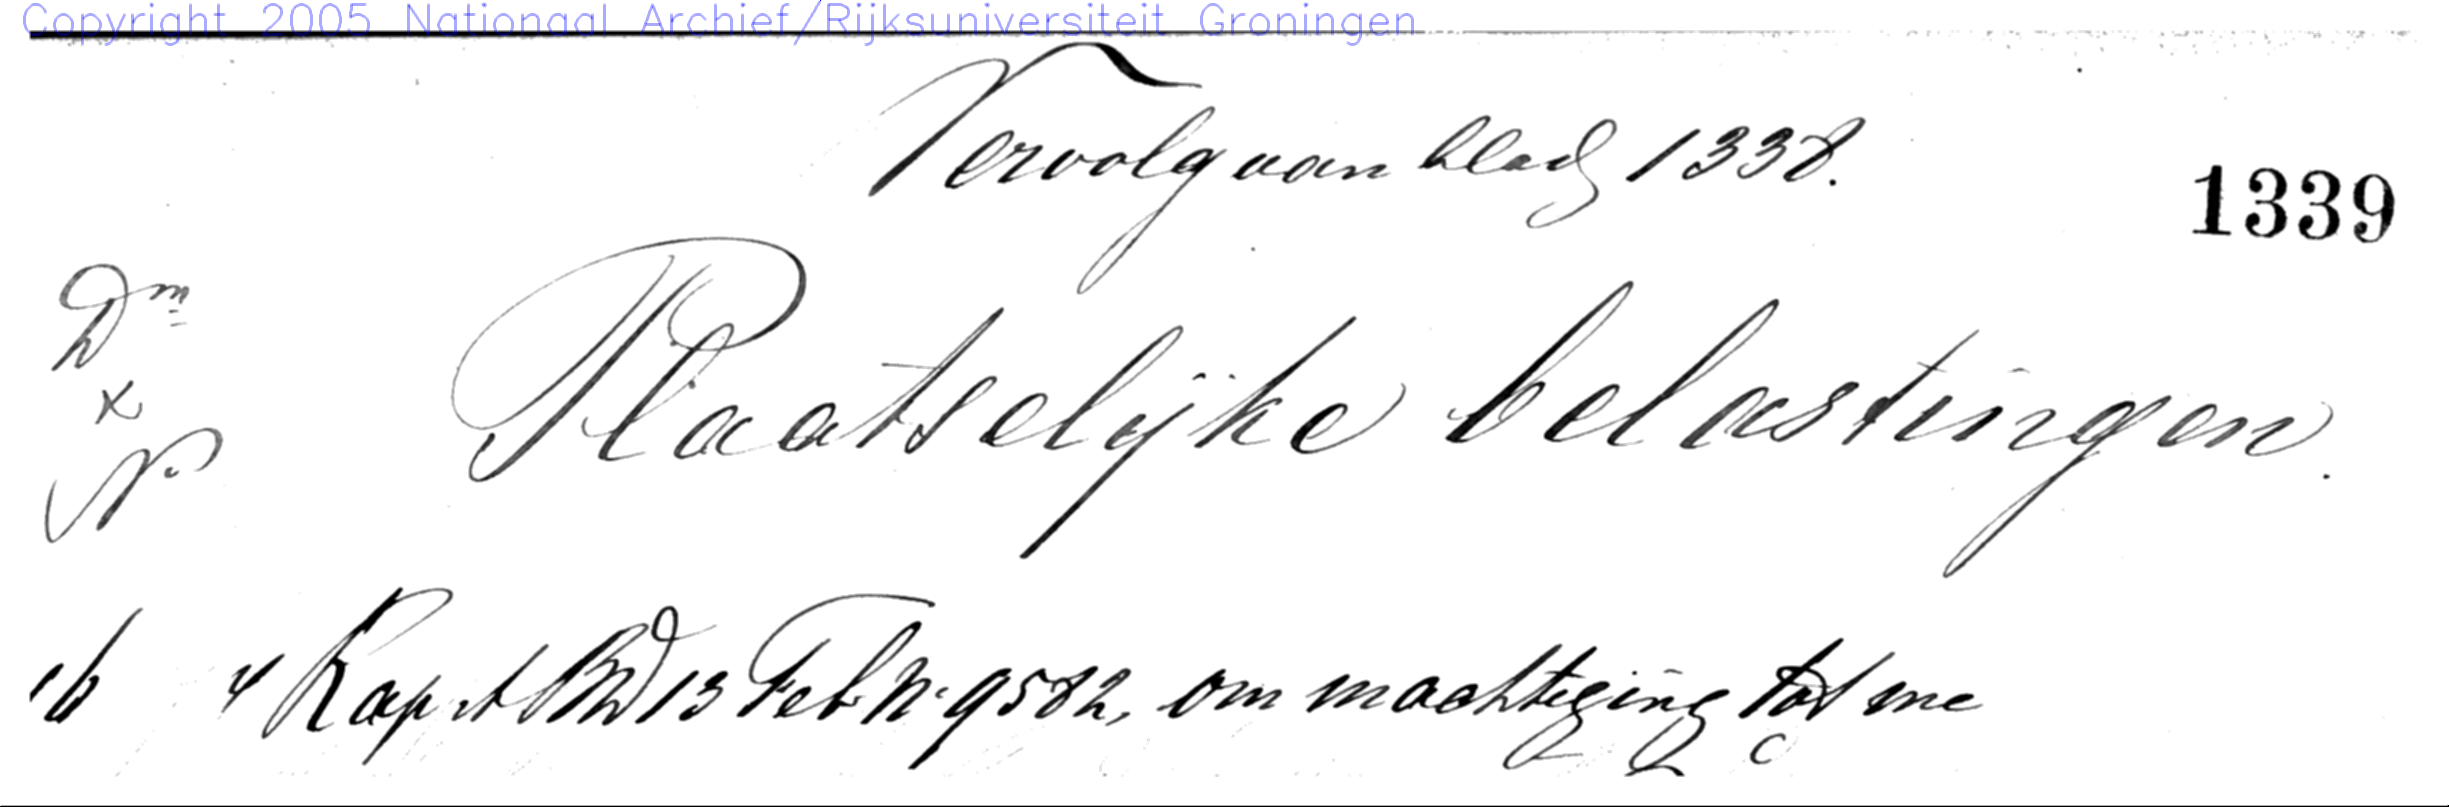 Copyright 2005 Nationaal Archief/Rijksuniversiteit Groningen
Vervolg van blad 1338.
1339
Dm
x
N
Plaatselijke belastingen.
16 4 Rap. 13 Feb N. 9582, om machtiging tot me